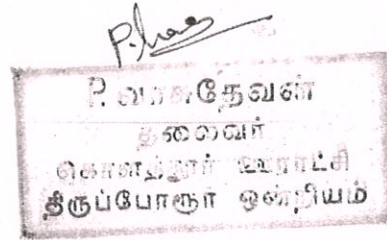 P. வாசுதேவன்
தலைவர்
கொளத்தூர் ஊராட்சி
திருப்போரூர் ஒன்றியம்